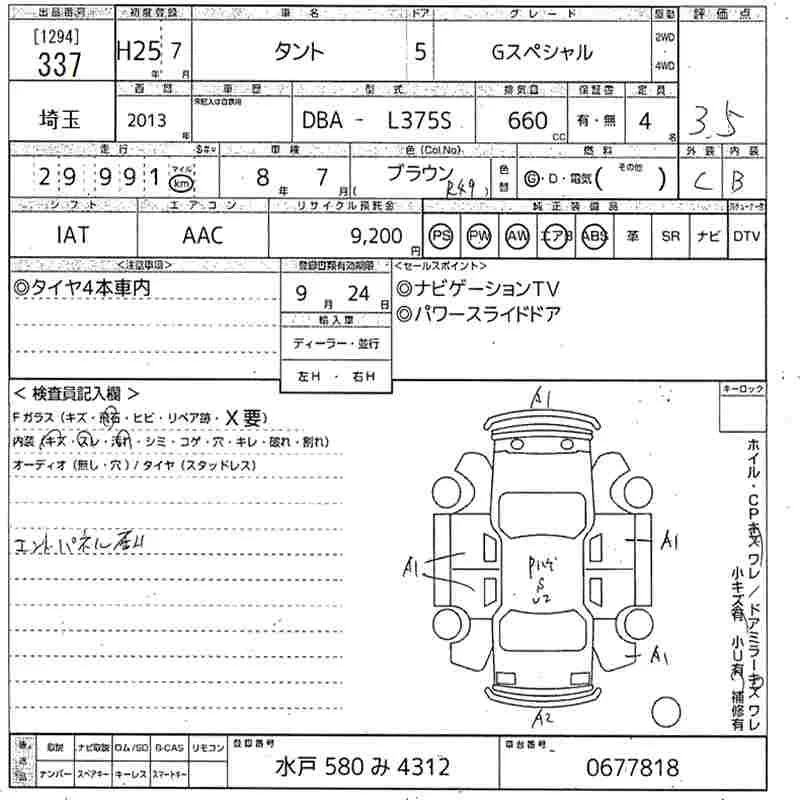 出品番号 初度登録 車名 ドア グレード 駆動 評価点
[1294]
337
H25 7
年 月
タント 5 Gスペシャル
2WD
・
4WD
西暦 車歴 型式 排気量 保証書 定員
未記入は自家用
埼玉 2013 年 DBA - L375S 660 CC 有・無 4 名
3.5
走行 車検 色(Col.No) 燃料 外装 内装
29,991
マイル
km
8 年 7 月
ブラウン
( R49 )
色替
Ⓖ・D・電気( その他 )
C B
シフト エアコン リサイクル預託金 純正装備品
IAT AAC 9,200 円
PS PW AW エアB ABS 革 SR ナビ DTV
<注意事項> 登録書類有効期限 <セールスポイント>
◎タイヤ4本車内
9 月 24 日
◎ナビゲーションTV
◎パワースライドドア
輸入車
ディーラー・並行
左H ・ 右H
< 検査員記入欄 >
キーロック
Fガラス (キズ・飛石・ヒビ・リペア跡・X要)
内装 (キズ・スレ・汚れ・シミ・コゲ・穴・キレ・破れ・割れ)
オーディオ (無し・穴) / タイヤ (スタッドレス)
エンドパネル
A1
A1
A1
A1
A2
Pハゲ
S
U2
ホイル・CPキズ ワレ / ドアミラーキズ ワレ
小キズ有 小U有 補修有
後送品
取説 ナビ取説 ロム/SD B-CAS リモコン
ナンバー スペアキー キーレス スマートキー
登録番号
水戸 580 み 4312
車台番号
0677818